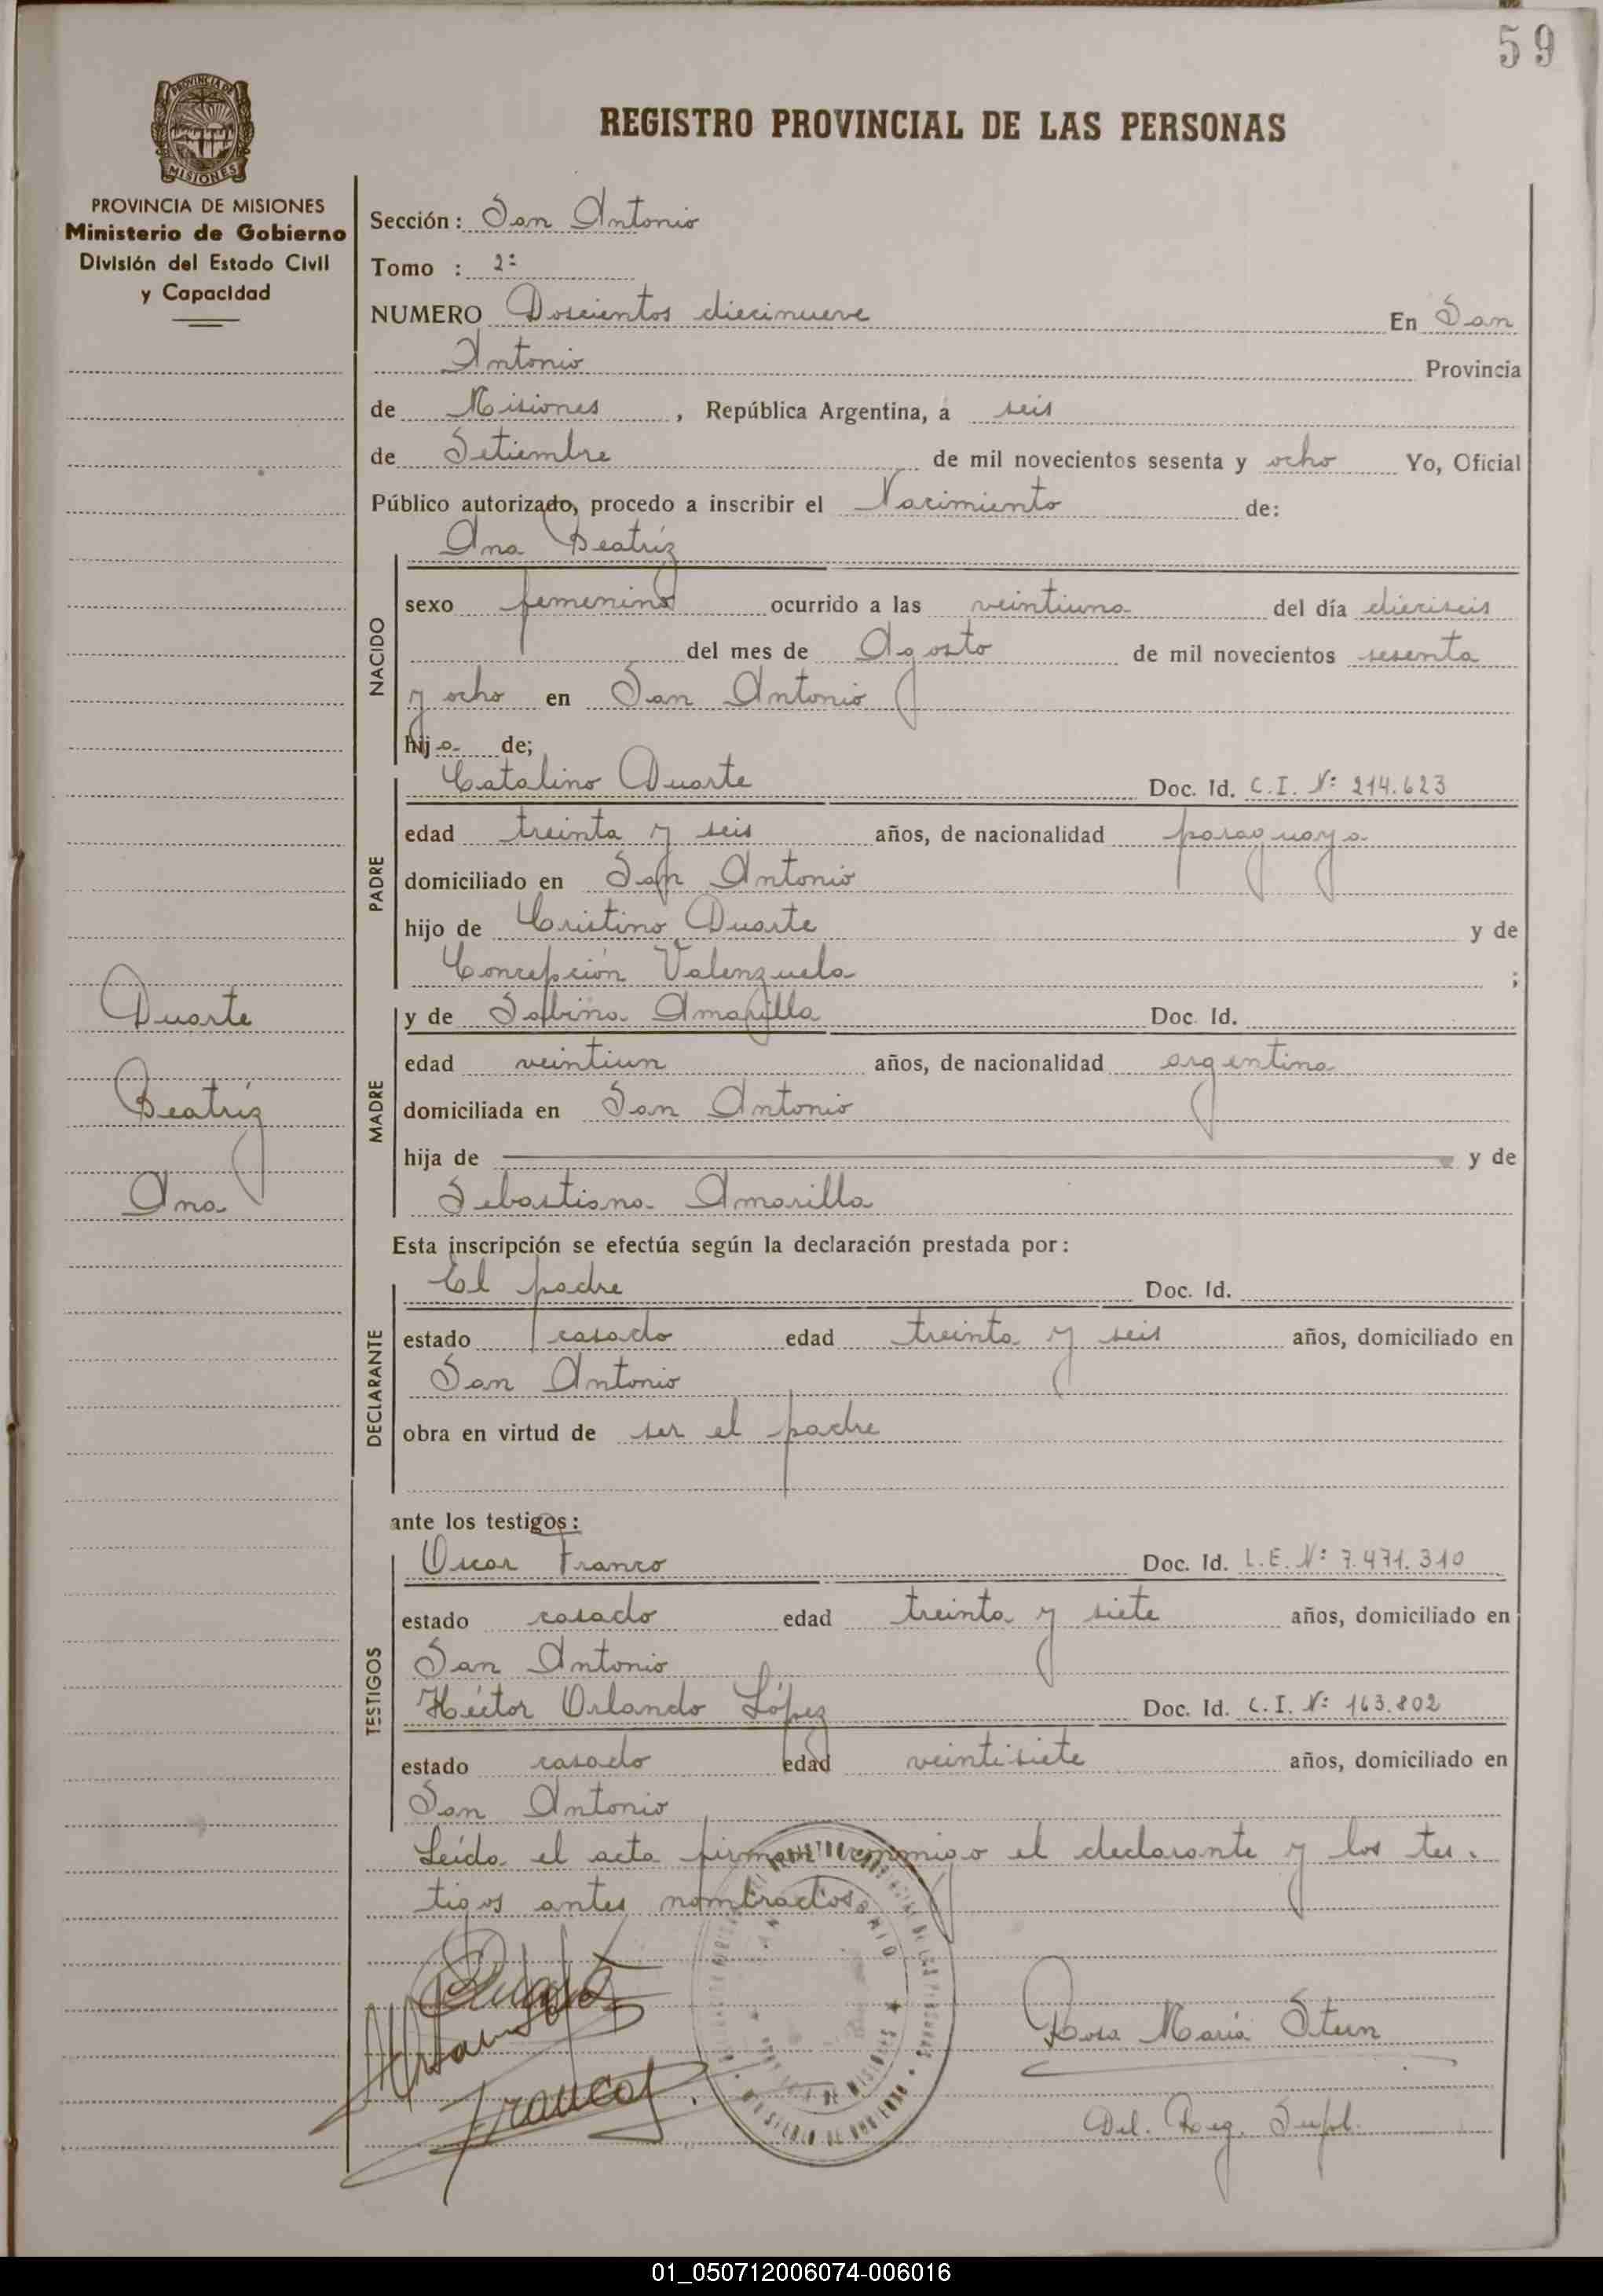 59
PROVINCIA DE
MISIONES
REGISTRO PROVINCIAL DE LAS PERSONAS
PROVINCIA DE MISIONES
Ministerio de Gobierno
División del Estado Civil
y Capacidad
Sección: San Antonio
Tomo : 2º
NUMERO Doscientos diecinueve En San
Antonio Provincia
de Misiones, República Argentina, a seis
de Setiembre de mil novecientos sesenta y ocho Yo, Oficial
Público autorizado, procedo a inscribir el Nacimiento de:
NACIDO
Ana Beatríz
sexo femenino ocurrido a las veintiuna del día dieciseis
del mes de Agosto de mil novecientos sesenta
y ocho en San Antonio
hija de;
PADRE
Catalino Duarte Doc. Id. C.I. Nº 214.623
edad treinta y seis años, de nacionalidad paraguaya
domiciliado en San Antonio
hijo de Cristino Duarte y de
Concepción Valenzuela ;
MADRE
y de Sabina Amarilla Doc. Id.
edad veintiun años, de nacionalidad argentina
domiciliada en San Antonio
hija de y de
Sebastiana Amarilla
Duarte
Beatríz
Ana
Esta inscripción se efectúa según la declaración prestada por:
DECLARANTE
El padre Doc. Id.
estado casado edad treinta y seis años, domiciliado en
San Antonio
obra en virtud de ser el padre
ante los testigos:
TESTIGOS
Oscar Franco Doc. Id. L.E. Nº 7.471.310
estado casado edad treinta y siete años, domiciliado en
San Antonio
Héctor Orlando López Doc. Id. C.I. Nº 163.802
estado casado edad veintisiete años, domiciliado en
San Antonio
Leída el acta firman conmigo el declarante y los tes-
tigos antes nombrados
Franco
Rosa María Stein
Del. Reg. Supl.
01_050712006074-006016